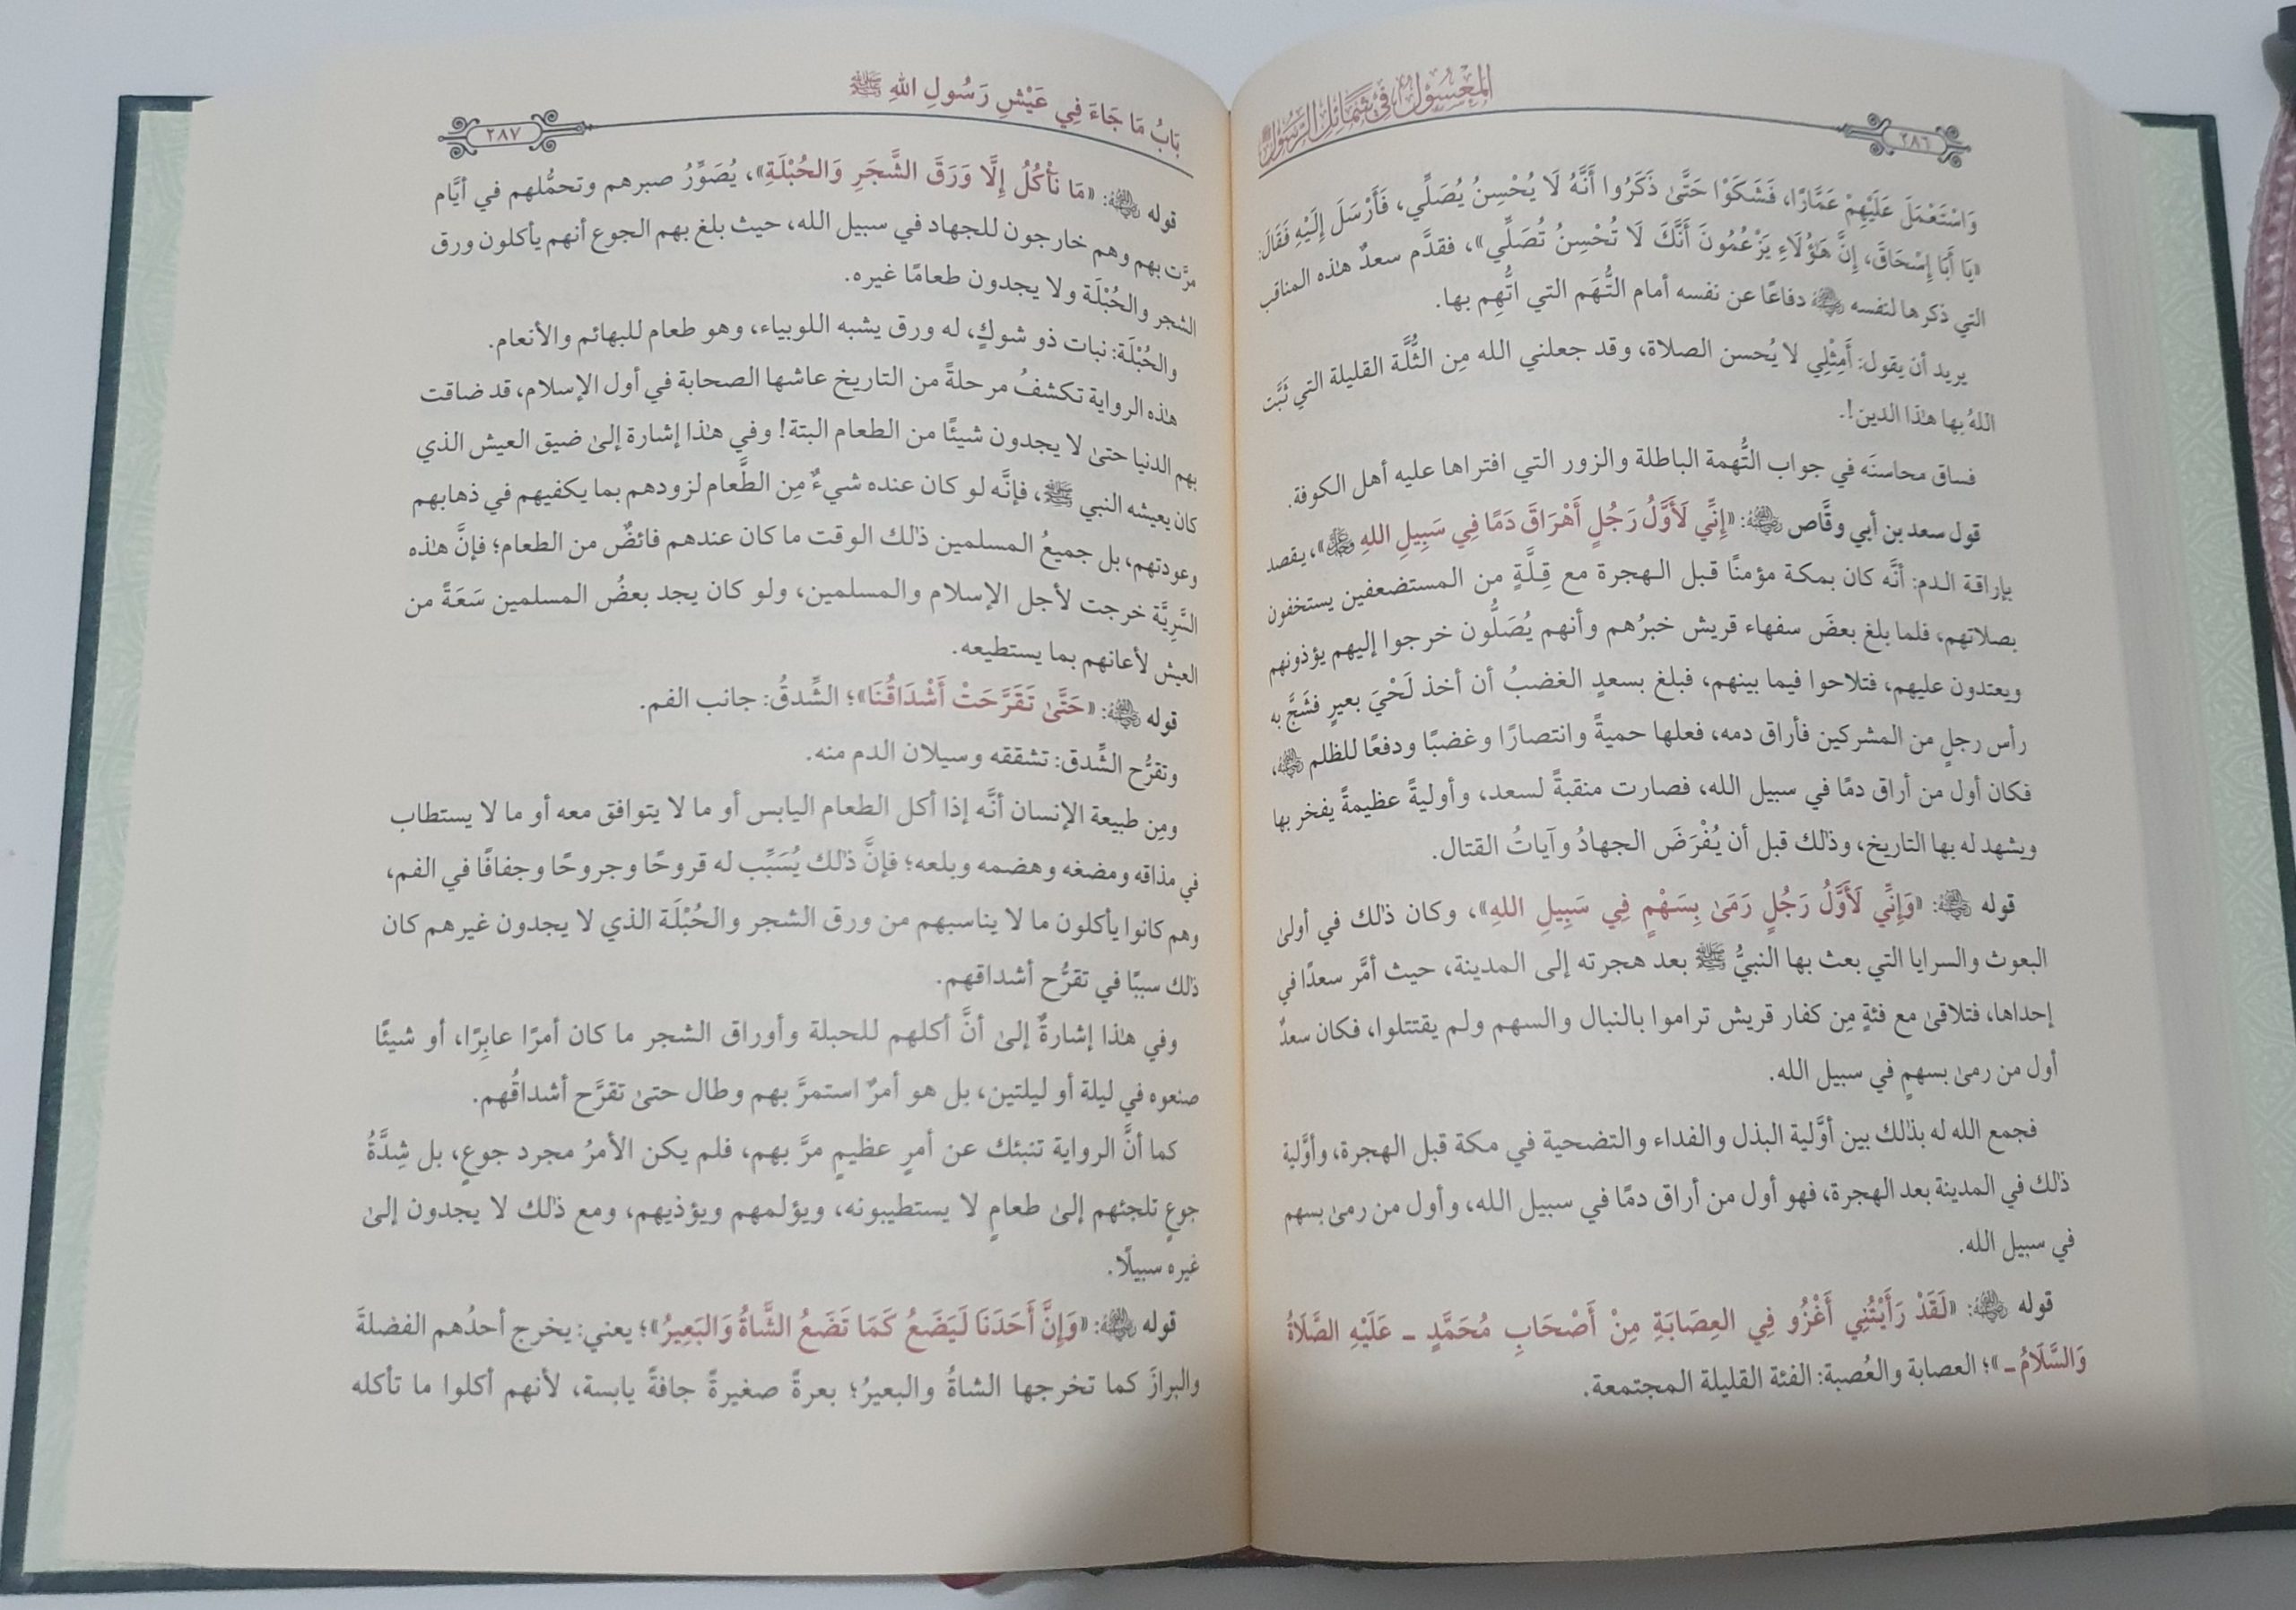 المعسول في شمائل الرسول ﷺ
٢٨٦
وَاسْتَعْمَلَ عَلَيْهِمْ عَمَّارًا، فَشَكَوْا حَتَّىٰ ذَكَرُوا أَنَّهُ لَا يُحْسِنُ يُصَلِّي، فَأَرْسَلَ إِلَيْهِ فَقَالَ:
«يَا أَبَا إِسْحَاقَ، إِنَّ هَؤُلَاءِ يَزْعُمُونَ أَنَّكَ لَا تُحْسِنُ تُصَلِّي»، فقدَّم سعدٌ هذه المناقب
التي ذكرها لنفسه رضي الله عنه دفاعًا عن نفسه أمام التُّهَم التي اتُّهِم بها.
يريد أن يقول: أَمِثْلِي لا يُحسن الصلاة، وقد جعلني الله مِن الثُّلَّة القليلة التي ثَبَّت
اللهُ بها هذا الدين!.
فساق محاسنَه في جواب التُّهمة الباطلة والزور التي افتراها عليه أهل الكوفة.
قول سعد بن أبي وقَّاص رضي الله عنه: «إِنِّي لَأَوَّلُ رَجُلٍ أَهْرَاقَ دَمًا فِي سَبِيلِ اللهِ عز وجل»، يقصد
بإراقة الدم: أنَّه كان بمكة مؤمنًا قبل الهجرة مع قِلَّةٍ من المستضعفين يستخفون
بصلاتهم، فلما بلغ بعضَ سفهاء قريش خبرُهم وأنهم يُصَلُّون خرجوا إليهم يؤذونهم
ويعتدون عليهم، فتلاحوا فيما بينهم، فبلغ بسعدٍ الغضبُ أن أخذ لَحْيَ بعيرٍ فشَجَّ به
رأس رجلٍ من المشركين فأراق دمه، فعلها حميةً وانتصارًا وغضبًا ودفعًا للظلم رضي الله عنه،
فكان أول من أراق دمًا في سبيل الله، فصارت منقبةً لسعد، وأوليةً عظيمةً يفخر بها
ويشهد له بها التاريخ، وذلك قبل أن يُفْرَضَ الجهادُ وآياتُ القتال.
قوله رضي الله عنه: «وَإِنِّي لَأَوَّلُ رَجُلٍ رَمَىٰ بِسَهْمٍ فِي سَبِيلِ اللهِ»، وكان ذلك في أولىٰ
البعوث والسرايا التي بعث بها النبيُّ ﷺ بعد هجرته إلى المدينة، حيث أمَّر سعدًا في
إحداها، فتلاقىٰ مع فئةٍ مِن كفار قريش تراموا بالنبال والسهم ولم يقتتلوا، فكان سعدٌ
أول من رمىٰ بسهمٍ في سبيل الله.
فجمع الله له بذلك بين أوَّلية البذل والفداء والتضحية في مكة قبل الهجرة، وأوَّلية
ذلك في المدينة بعد الهجرة، فهو أول من أراق دمًا في سبيل الله، وأول من رمىٰ بسهم
في سبيل الله.
قوله رضي الله عنه: «لَقَدْ رَأَيْتُنِي أَغْزُو فِي العِصَابَةِ مِنْ أَصْحَابِ مُحَمَّدٍ - عَلَيْهِ الصَّلَاةُ
وَالسَّلَامُ -»؛ العصابة والعُصبة: الفئة القليلة المجتمعة.
بَابُ مَا جَاءَ فِي عَيْشِ رَسُولِ اللهِ ﷺ
٢٨٧
قوله رضي الله عنه: «مَا نَأْكُلُ إِلَّا وَرَقَ الشَّجَرِ وَالحُبْلَةِ»، يُصَوِّرُ صبرهم وتحمُّلهم في أيَّام
مرَّت بهم وهم خارجون للجهاد في سبيل الله، حيث بلغ بهم الجوع أنهم يأكلون ورق
الشجر والحُبْلَة ولا يجدون طعامًا غيره.
والحُبْلَة: نبات ذو شوكٍ، له ورق يشبه اللوبياء، وهو طعام للبهائم والأنعام.
هذه الرواية تكشفُ مرحلةً من التاريخ عاشها الصحابة في أول الإسلام، قد ضاقت
بهم الدنيا حتىٰ لا يجدون شيئًا من الطعام البتة! وفي هذا إشارة إلىٰ ضيق العيش الذي
كان يعيشه النبي ﷺ، فإنَّه لو كان عنده شيءٌ مِن الطَّعام لزودهم بما يكفيهم في ذهابهم
وعودتهم، بل جميعُ المسلمين ذلك الوقت ما كان عندهم فائضٌ من الطعام؛ فإنَّ هذه
السَّرِيَّة خرجت لأجل الإسلام والمسلمين، ولو كان يجد بعضُ المسلمين سَعَةً من
العيش لأعانهم بما يستطيعه.
قوله رضي الله عنه: «حَتَّىٰ تَقَرَّحَتْ أَشْدَاقُنَا»؛ الشِّدقُ: جانب الفم.
وتقرُّح الشِّدق: تشققه وسيلان الدم منه.
ومِن طبيعة الإنسان أنَّه إذا أكل الطعام اليابس أو ما لا يتوافق معه أو ما لا يستطاب
في مذاقه ومضغه وهضمه وبلعه؛ فإنَّ ذلك يُسَبِّب له قروحًا وجروحًا وجفافًا في الفم،
وهم كانوا يأكلون ما لا يناسبهم من ورق الشجر والحُبْلَة الذي لا يجدون غيرهم كان
ذلك سببًا في تقرُّح أشداقهم.
وفي هذا إشارةٌ إلىٰ أنَّ أكلهم للحبلة وأوراق الشجر ما كان أمرًا عابِرًا، أو شيئًا
صنعوه في ليلة أو ليلتين، بل هو أمرٌ استمرَّ بهم وطال حتىٰ تقرَّح أشداقُهم.
كما أنَّ الرواية تنبئك عن أمرٍ عظيمٍ مرَّ بهم، فلم يكن الأمرُ مجرد جوعٍ، بل شِدَّةُ
جوعٍ تلجئهم إلىٰ طعامٍ لا يستطيبونه، ويؤلمهم ويؤذيهم، ومع ذلك لا يجدون إلىٰ
غيره سبيلًا.
قوله رضي الله عنه: «وَإِنَّ أَحَدَنَا لَيَضَعُ كَمَا تَضَعُ الشَّاةُ وَالبَعِيرُ»؛ يعني: يخرج أحدُهم الفضلةَ
والبرازَ كما تخرجها الشاةُ والبعيرُ؛ بعرةً صغيرةً جافةً يابسة، لأنهم أكلوا ما تأكله